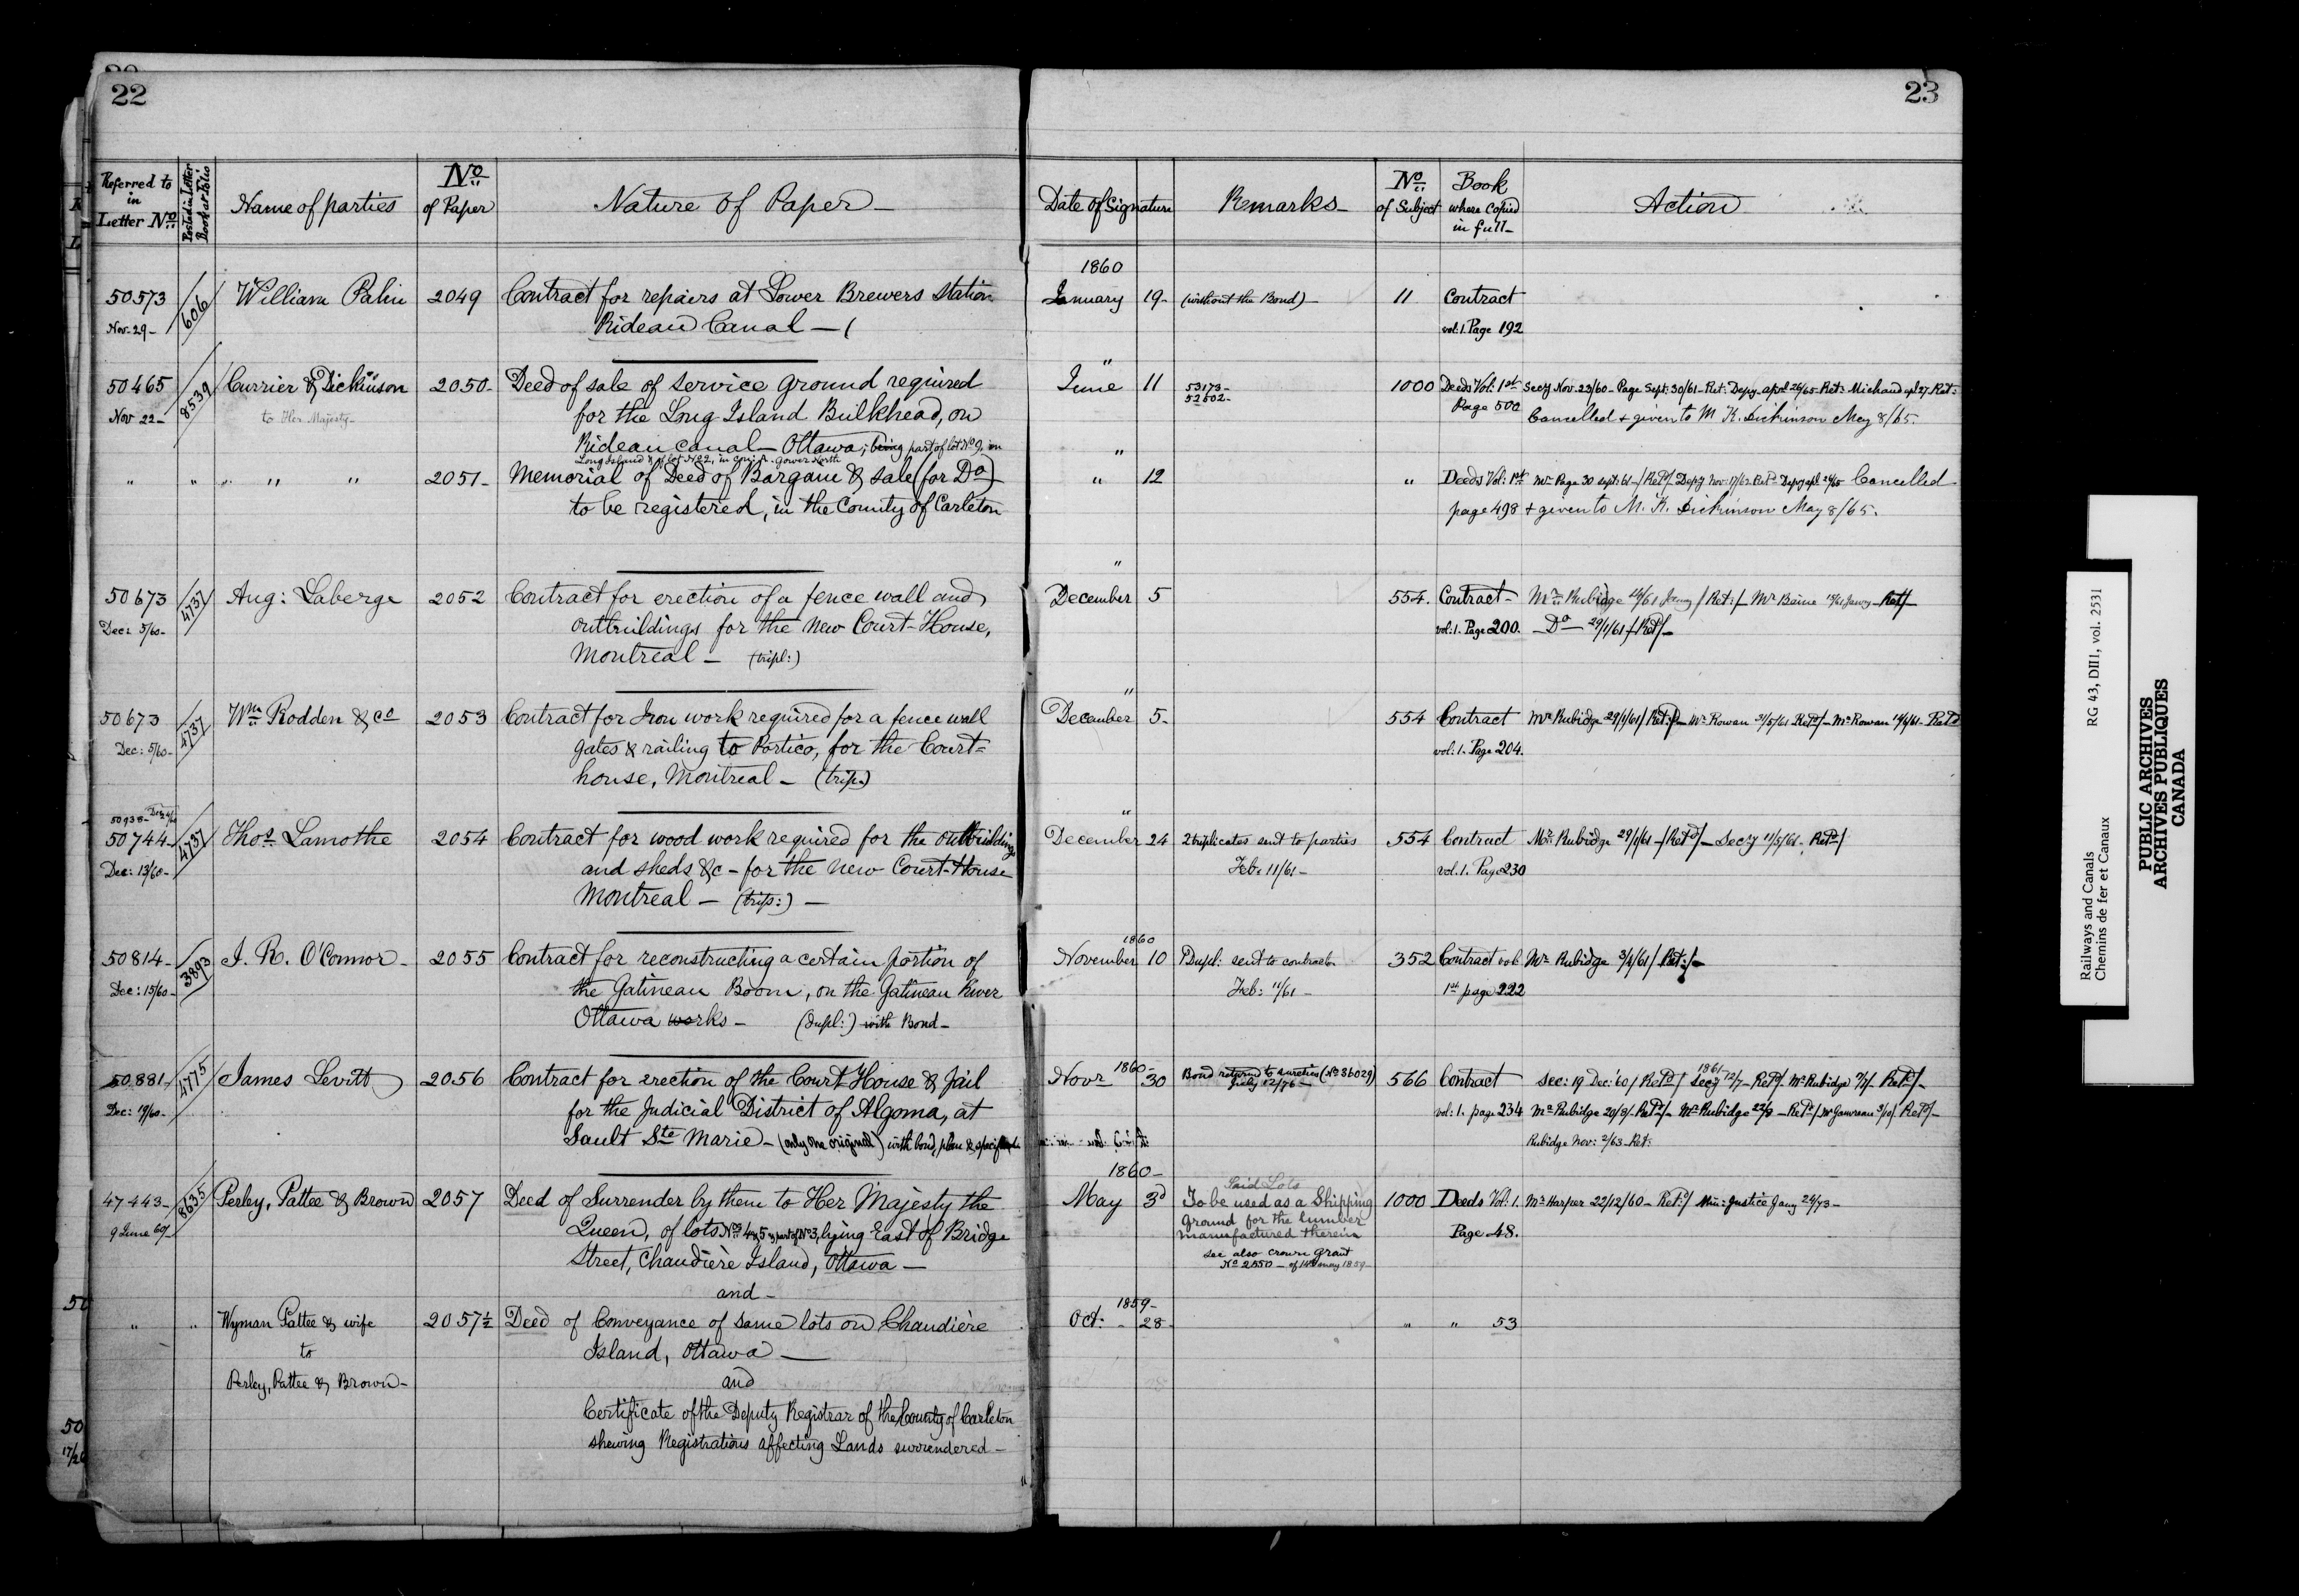 22
Referred to in Letter No
Posted in Letter Book at folio
Name of parties
No of Paper
Nature of Paper
50573
Nov. 29
606
William Palin
2049
Contract for repairs at Lower Brewers Station
Rideau Canal
50465
Nov 22
8539
Currier & Dickinson
to Her Majesty
2050
Deed of sale of service ground required
for the Long Island Bulkhead, on
Rideau canal - Ottawa; being part of lot No 9, on
Long Island & of lot No 22, in Con: A. Gower North
" " " " "
2051
Memorial of Deed of Bargain & sale (for Do)
to be registered, in the County of Carleton
50673
Dec: 5/60
4737
Aug: Laberge
2052
Contract for erection of a fence wall and
outbuildings for the New Court-House,
Montreal - (tripl:)
50673
Dec: 5/60
4737
Wm Rodden & Co
2053
Contract for Iron work required for a fence wall
gates & railing to Portico, for the Court-
house, Montreal - (trip.)
50938
50744
Dec: 13/60
4737
Thos Lamothe
2054
Contract for wood work required for the outbuildings
and sheds &c - for the New Court-House
Montreal - (trip:) -
50814
Dec: 15/60
3893
J. R. O'Connor
2055
Contract for reconstructing a certain portion of
the Gatineau Boom, on the Gatineau River
Ottawa works - (dupl:) with Bond -
50881
Dec: 19/60
4775
James Levitt
2056
Contract for erection of the Court House & Jail
for the Judicial District of Algoma, at
Sault Ste Marie - (only one original) with bond, plan &
47443
9 June 60
8635
Perley, Pattee & Brown
2057
Deed of Surrender by them to Her Majesty the
Queen, of lots Nos 4 & 5 & part of No 3, lying East of Bridge
Street, Chaudière Island, Ottawa -
and -
" "
Wyman Pattee & wife
to
Perley, Pattee & Brown -
2057½
Deed of Conveyance of same lots on Chaudière
Island, Ottawa -
and
Certificate of the Deputy Registrar of the County of Carleton
shewing Registrations affecting Lands surrendered -
50
17/26
23
Date of Signature
Remarks
No of Subject
Book where copied in full
Action
1860
January 19
(without the Bond) -
11
Contract
vol: 1. Page 192
"
June 11
53173
52602
1000
Deeds Vol: 1st
Page 500
Secy Nov. 23/60 - Page Sept: 30/61 - Ret: Depy april 26/65 - Ret: Michaud apl 27 Ret:
Cancelled & given to M. K. Dickinson May 8/65.
"
" 12
"
Deeds Vol: 1st
page 498
Mr Page 30 Sept: 61 - / Retd / Depy Nov: 17/62 Retd Depy apl 26/65 Cancelled
& given to M. K. Dickinson May 8/65.
"
December 5
554.
Contract -
vol: 1. Page 200.
Mr Rubidge Jany / Ret: / - Mr Baine Jany - Ret /
- Do - 29/1/61 / Ret /
"
December 5
554
Contract
vol: 1. Page 204.
Mr Rubidge 29/1/61 / Ret: / - Mr Rowan 31/5/61 Retd / - Mr Rowan 14/6/61 - Retd
"
December 24
2 triplicates sent to parties
Feb. 11/61 -
554
Contract
vol. 1. Page 230
Mr Rubidge 29/1/61 - / Retd / - Secy 11/5/61 - Retd /
1860
November 10
Dupl: sent to contractor
Feb: 11/61 -
352
Contract vol.
1st page 222
Mr Rubidge 3/4/61 / Ret: / -
1860
Novr 30
Bond returned to sureties (No 36029)
July 12/76 -
566
Contract
vol: 1. page 234
Sec: 19 Dec: '60 / Retd / 1861 Secy 12/7 - Retd / Mr Rubidge / Retd / -
Mr Rubidge 20/8 / - Retd / - Mr Rubidge 22/9 - Retd / Mr Gauvreau 3/10 / Retd / -
Rubidge Nov: 2/63 - Ret:
1860 -
May 3d
Said Lots
To be used as a Shipping
ground for the lumber
manufactured therein
see also Crown Grant
No 2550 - of may 1859
1000
Deeds Vol: 1.
Page 48.
Mr Harper 22/12/60 - Ret: / Min: Justice Jany 24/73 -
1859 -
Oct: 28
"
" 53
RG 43, DIII, vol. 2531
Railways and Canals
Chemins de fer et Canaux
PUBLIC ARCHIVES
ARCHIVES PUBLIQUES
CANADA